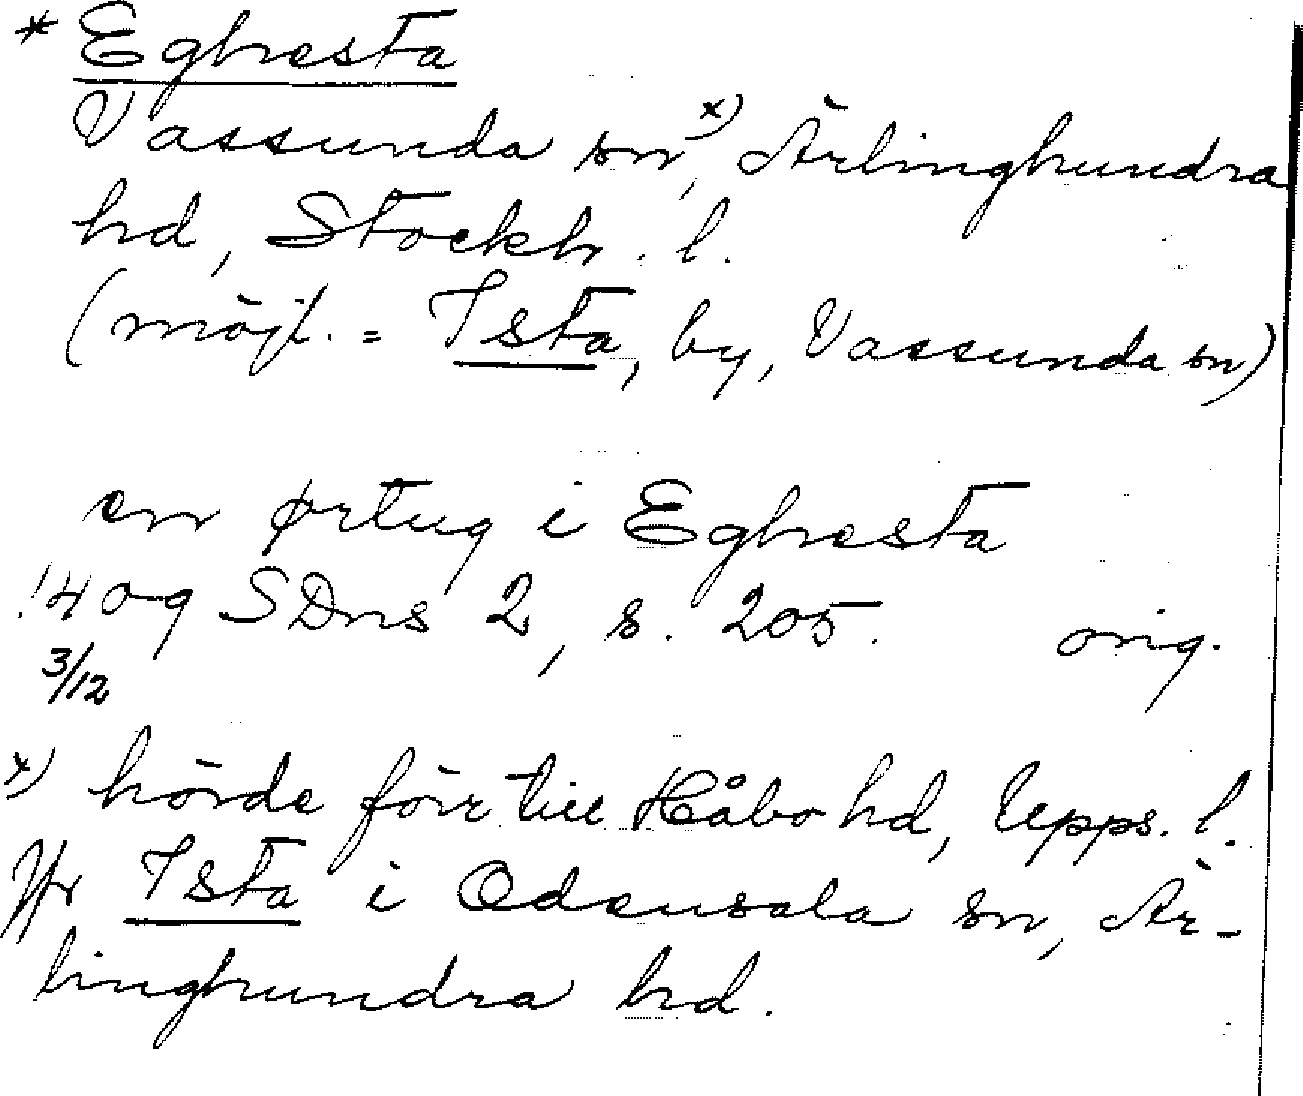 * Eghesta
Vassunda sn, x) Ärlinghundra
hd, Stockh. l.
(möjl. = Ista, by, Vassunda sn)
en ørtug i Eghesta
1409 SDns 2, s. 205. orig.
3/12
x) hörde förr till Håbo hd, Upps. l.
Jfr Ista i Odensala sn, Är-
linghundra hd.